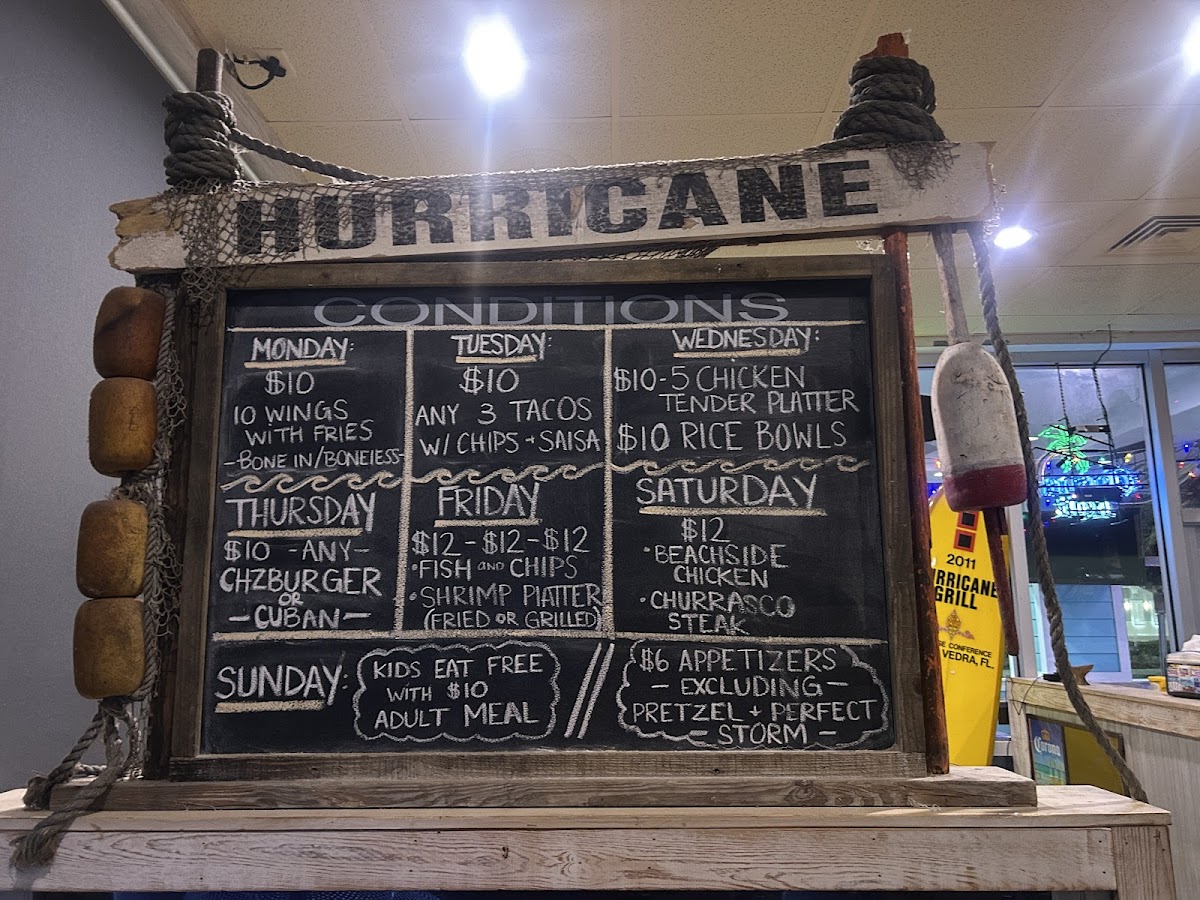 HURRICANE
CONDITIONS
MONDAY:
$10
10 WINGS
WITH FRIES
-BONE IN/BONELESS-
TUESDAY:
$10
ANY 3 TACOS
W/ CHIPS + SALSA
WEDNESDAY:
$10-5 CHICKEN
TENDER PLATTER
$10 RICE BOWLS
THURSDAY
$10 -ANY-
CHZBURGER
OR
-CUBAN-
FRIDAY
$12-$12-$12
•FISH AND CHIPS
•SHRIMP PLATTER
(FRIED OR GRILLED)
SATURDAY
$12
•BEACHSIDE
CHICKEN
•CHURRASCO
STEAK
SUNDAY:
KIDS EAT FREE
WITH $10
ADULT MEAL
//
$6 APPETIZERS
- EXCLUDING -
PRETZEL + PERFECT
- STORM -
2011
GRILL
CONFERENCE
VEDRA, FL.
Corona